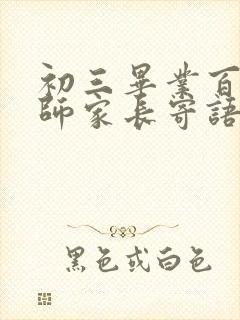 初三畢業百
師家長寄語
黑色或白色